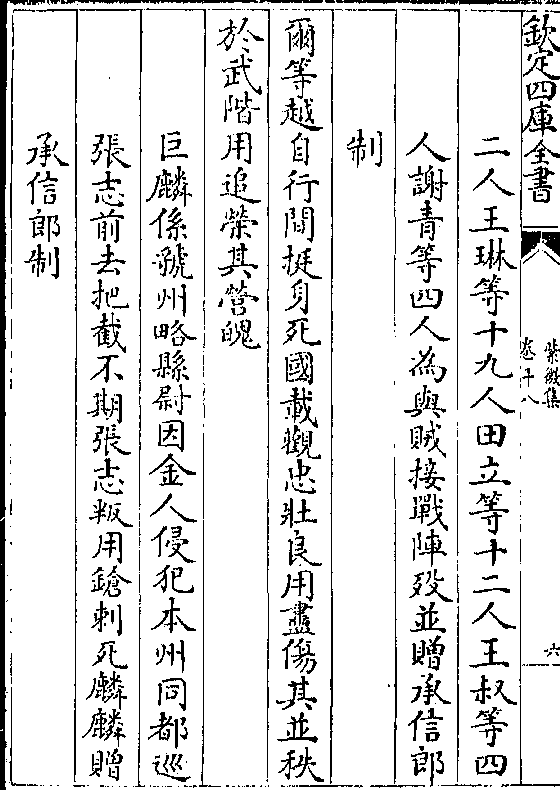 欽定四庫全書
紫微集
卷十八
六
二人王琳等十九人田立等十二人王叔等四
人謝青等四人為與賊接戰陣歿並贈承信郎
制
爾等越自行間挺身死國載觀忠壯良用盡傷其並秩
於武階用追榮其營魄
巨麟係虢州略縣尉因金人侵犯本州同都巡
張志前去把截不期張志叛用鎗刺死麟麟贈
承信郎制